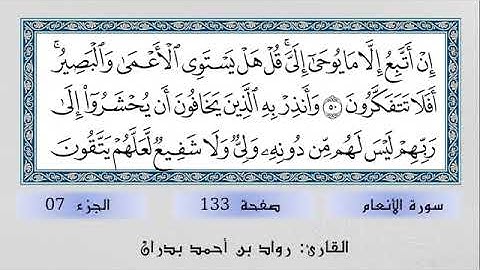 إِنْ أَتَّبِعُ إِلَّا مَا يُوحَىٰٓ إِلَىَّۚ قُلْ هَلْ يَسْتَوِى ٱلْأَعْمَىٰ وَٱلْبَصِيرُۚ
أَفَلَا تَتَفَكَّرُونَ ٥٠ وَأَنذِرْ بِهِ ٱلَّذِينَ يَخَافُونَ أَن يُحْشَرُوٓا۟ إِلَىٰ
رَبِّهِمْۙ لَيْسَ لَهُم مِّن دُونِهِۦ وَلِىٌّ وَلَا شَفِيعٌ لَّعَلَّهُمْ يَتَّقُونَ
سورة الانعام صفحة 133 الجزء 07
القارئ: رواد بن أحمد بدران